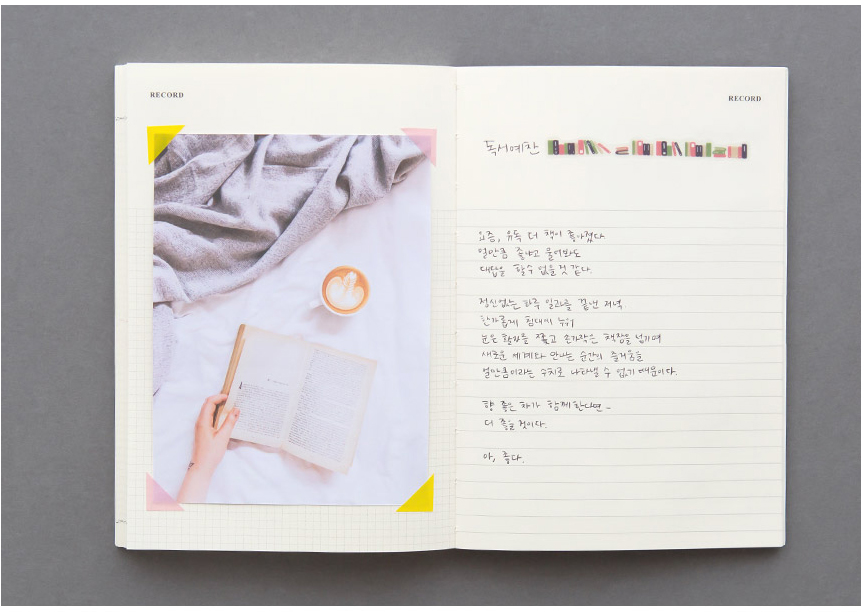 RECORD
RECORD
독서예찬
요즘, 유독 더 책이 좋아졌다
얼만큼 좋냐고 물어봐도
대답을 할 수 없을 것 같다.
정신없는 하루 일과를 끝낸 저녁
한가롭게 침대에 누워
눈은 활자를 쫓고 손가락은 책장을 넘기며
새로운 세계와 만나는 순간의 즐거움을
얼만큼이라는 수치로 나타낼 수 없기 때문이다.
향 좋은 차가 함께한다면~
더 좋을 것이다.
아, 좋다.